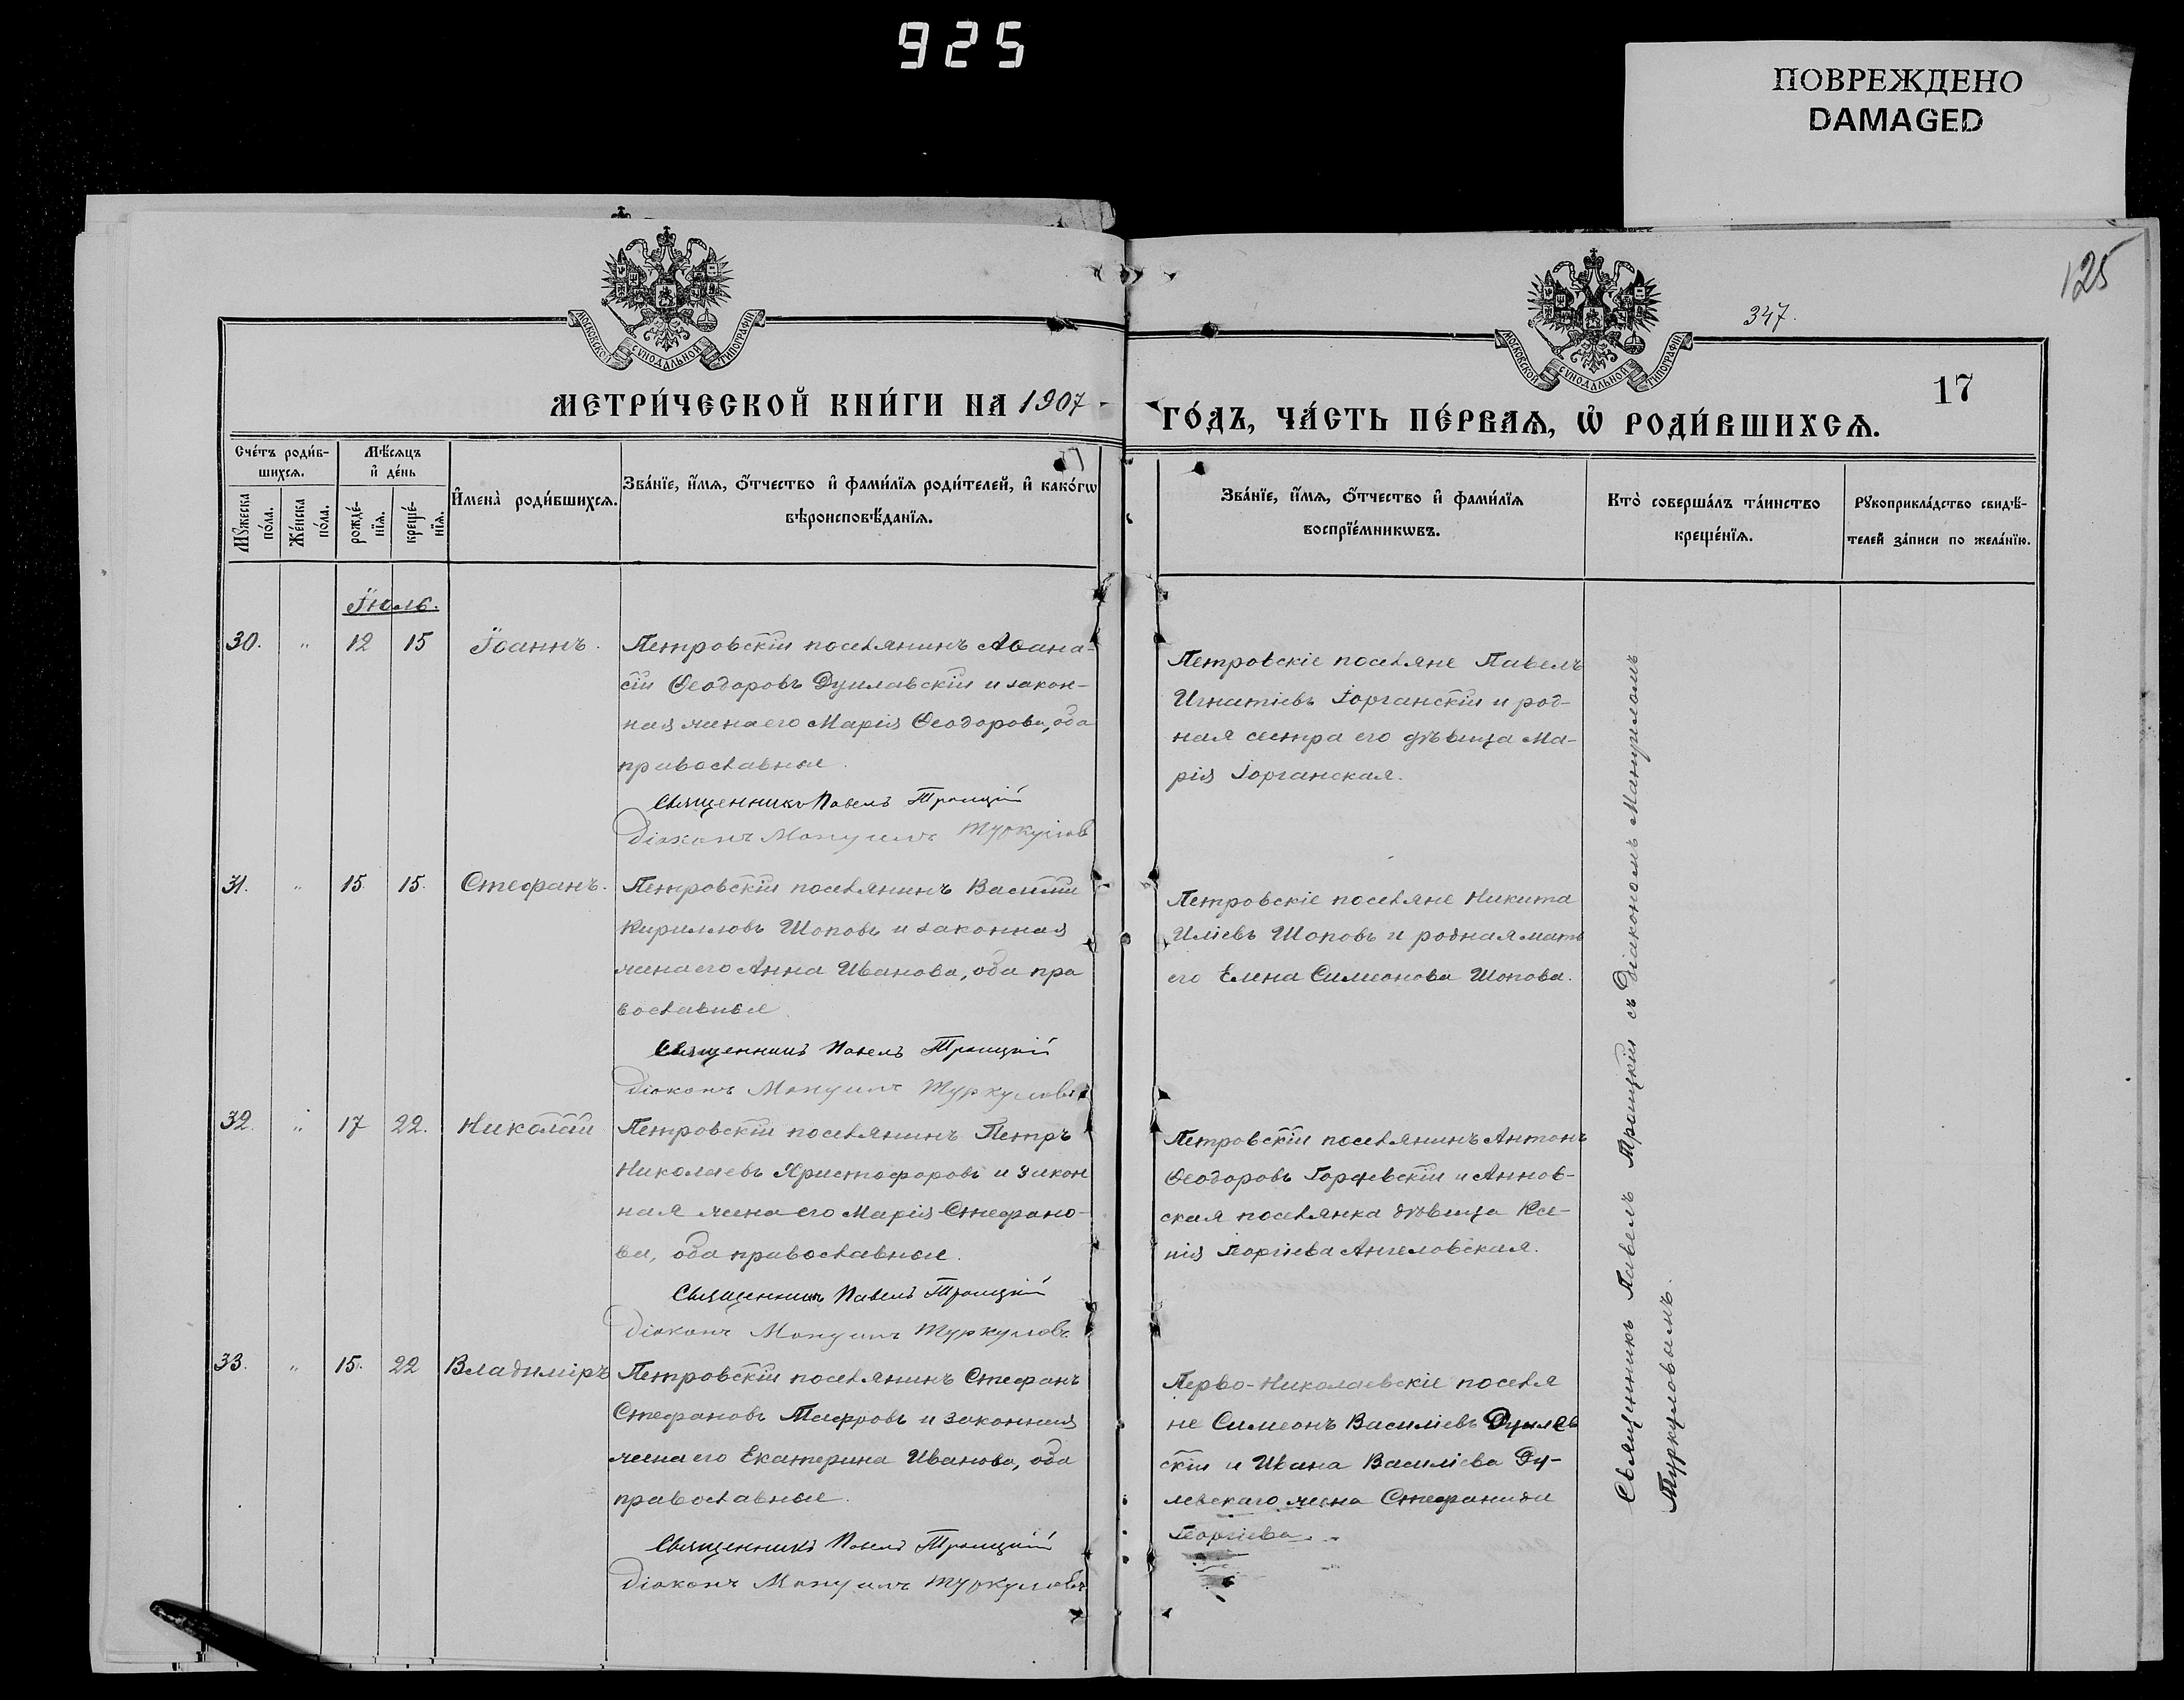 925
ПОВРЕЖДЕНО
DAMAGED
125
347.
МОСКОВСКОЙ СѴНОДАЛЬНОЙ ТИПОГРАФІИ
МОСКОВСКОЙ СѴНОДАЛЬНОЙ ТИПОГРАФІИ
17
МЕТРИ́ЧЕСКОЙ КНИ́ГИ НА 1907
ГО́ДЪ, ЧА́СТЬ ПЕ́РВАЯ, Ѡ҆ РОДИ́ВШИХСЯ.
Сче́тъ роди́в-
шихся.
Мꙋ́жеска
по́ла.
Же́нска
по́ла.
Мѣ́сяцъ
и҆ де́нь
рожде́-
нїя.
креще́-
нїя.
И҆мена̀ роди́вшихся.
Зва́нїе, и҆́мя, ѻ҆́тчество и҆ фами́лїя роди́телей, и҆ како́гѡ
вѣроисповѣ́данїя.
Зва́нїе, и҆́мя, ѻ҆́тчество и҆ фами́лїя
воспрїе́мникѡвъ.
Кто̀ соверша́лъ та́инство
креще́нїя.
Рꙋкоприкла́дство свидѣ́-
телей за́писи по жела́нїю.
Іюль.
30. " 12 15 Іоаннъ.
Петровскій поселянинъ Аѳана-
сій Ѳеодоровъ Дуилавскій и закон-
ная жена его Марія Ѳеодорова, оба
православные.
Священникъ Павелъ Троицкій
Діаконъ Мануилъ Туркуловъ
Петровскіе поселяне Павелъ
Игнатіевъ Горганскій и род-
ная сестра его дѣвица Ма-
рія Горганская.
31. " 15. 15. Стефанъ.
Петровскій поселянинъ Василій
Кирилловъ Шоповъ и законная
жена его Анна Иванова, оба пра
вославные.
Священникъ Павелъ Троицкій
Діаконъ Мануилъ Туркуловъ
Петровскіе поселяне Никита
Иліевъ Шоповъ и родная мать
его Елена Симеонова Шопова.
32. " 17 22. Николай
Петровскій поселянинъ Петръ
Николаевъ Христофоровъ и закон
ная жена его Марія Стефано-
ва, оба православные.
Священникъ Павелъ Троицкій
Діаконъ Мануилъ Туркуловъ
Петровскій поселянинъ Антонъ
Ѳеодоровъ и Аннов-
ская поселянка дѣвица Ксе-
нія Георгіева Ангеловская.
33. " 15. 22 Владиміръ
Петровскій поселянинъ Стефанъ
Стефановъ и законная
жена его Екатерина Иванова, оба
православные.
Священникъ Павелъ Троицкій
Діаконъ Мануилъ Туркуловъ
Перво-Николаевскіе поселя
не Симеонъ Василіевъ
скій и Ивана Василіева Ду-
левскаго жена Стефанида
Георгіева.
Священникъ Павелъ Троицкій съ Діакономъ Мануиломъ
Туркуловымъ.